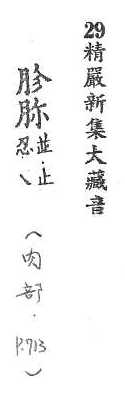 29精嚴新集大藏音
胗胏並止
忍乀
(肉部.
P.713)